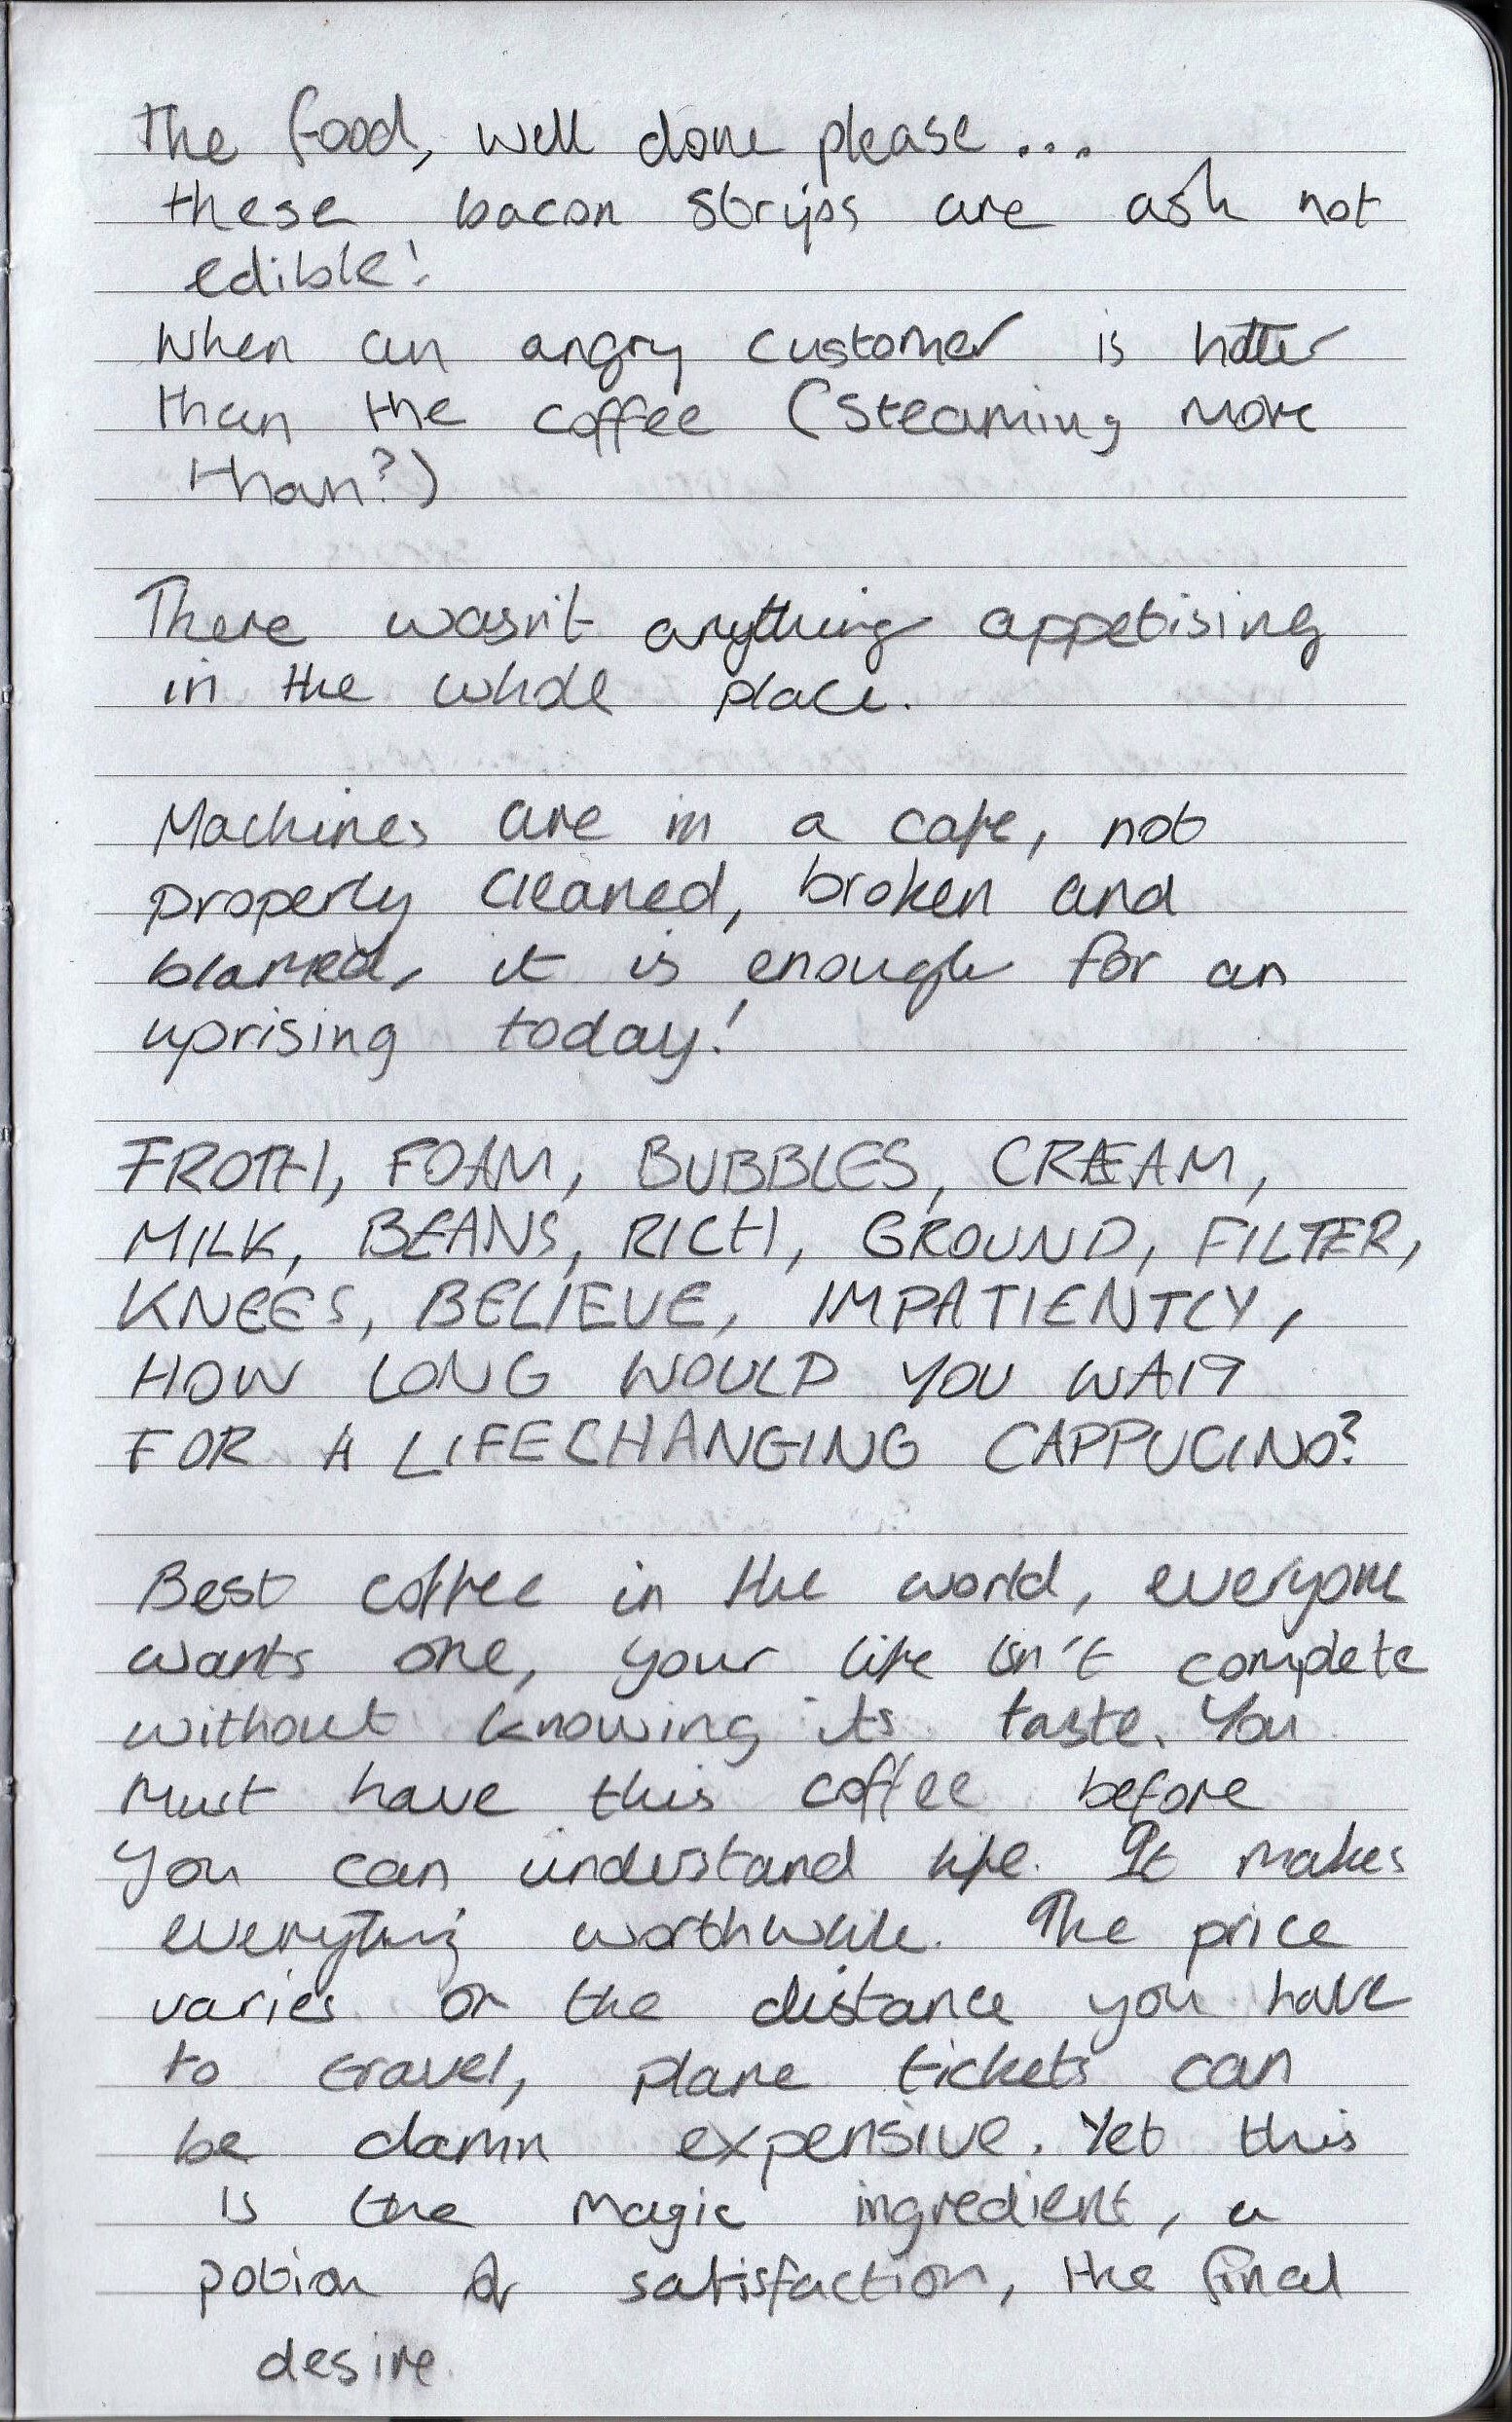 The food, well done please...
these bacon strips are ash not
edible!
When an angry customer is hotter
than the coffee (steaming more
than?)
There wasn't anything appetising
in the whole place.
Machines are in a cafe, not
properly cleaned, broken and
blamed, it is enough for an
uprising today!
FROTH, FOAM, BUBBLES, CREAM,
MILK, BEANS, RICH, GROUND, FILTER,
KNEES, BELIEVE, IMPATIENTLY,
HOW LONG WOULD YOU WAIT
FOR A LIFECHANGING CAPPUCINO?
Best coffee in the world, everyone
wants one, your life isn't complete
without knowing its taste. You
must have this coffee before
you can understand life. It makes
everything worthwhile. The price
varies on the distance you have
to travel, plane tickets can
be damn expensive. Yet this
is the magic ingredient, a
potion of satisfaction, the final
desire.